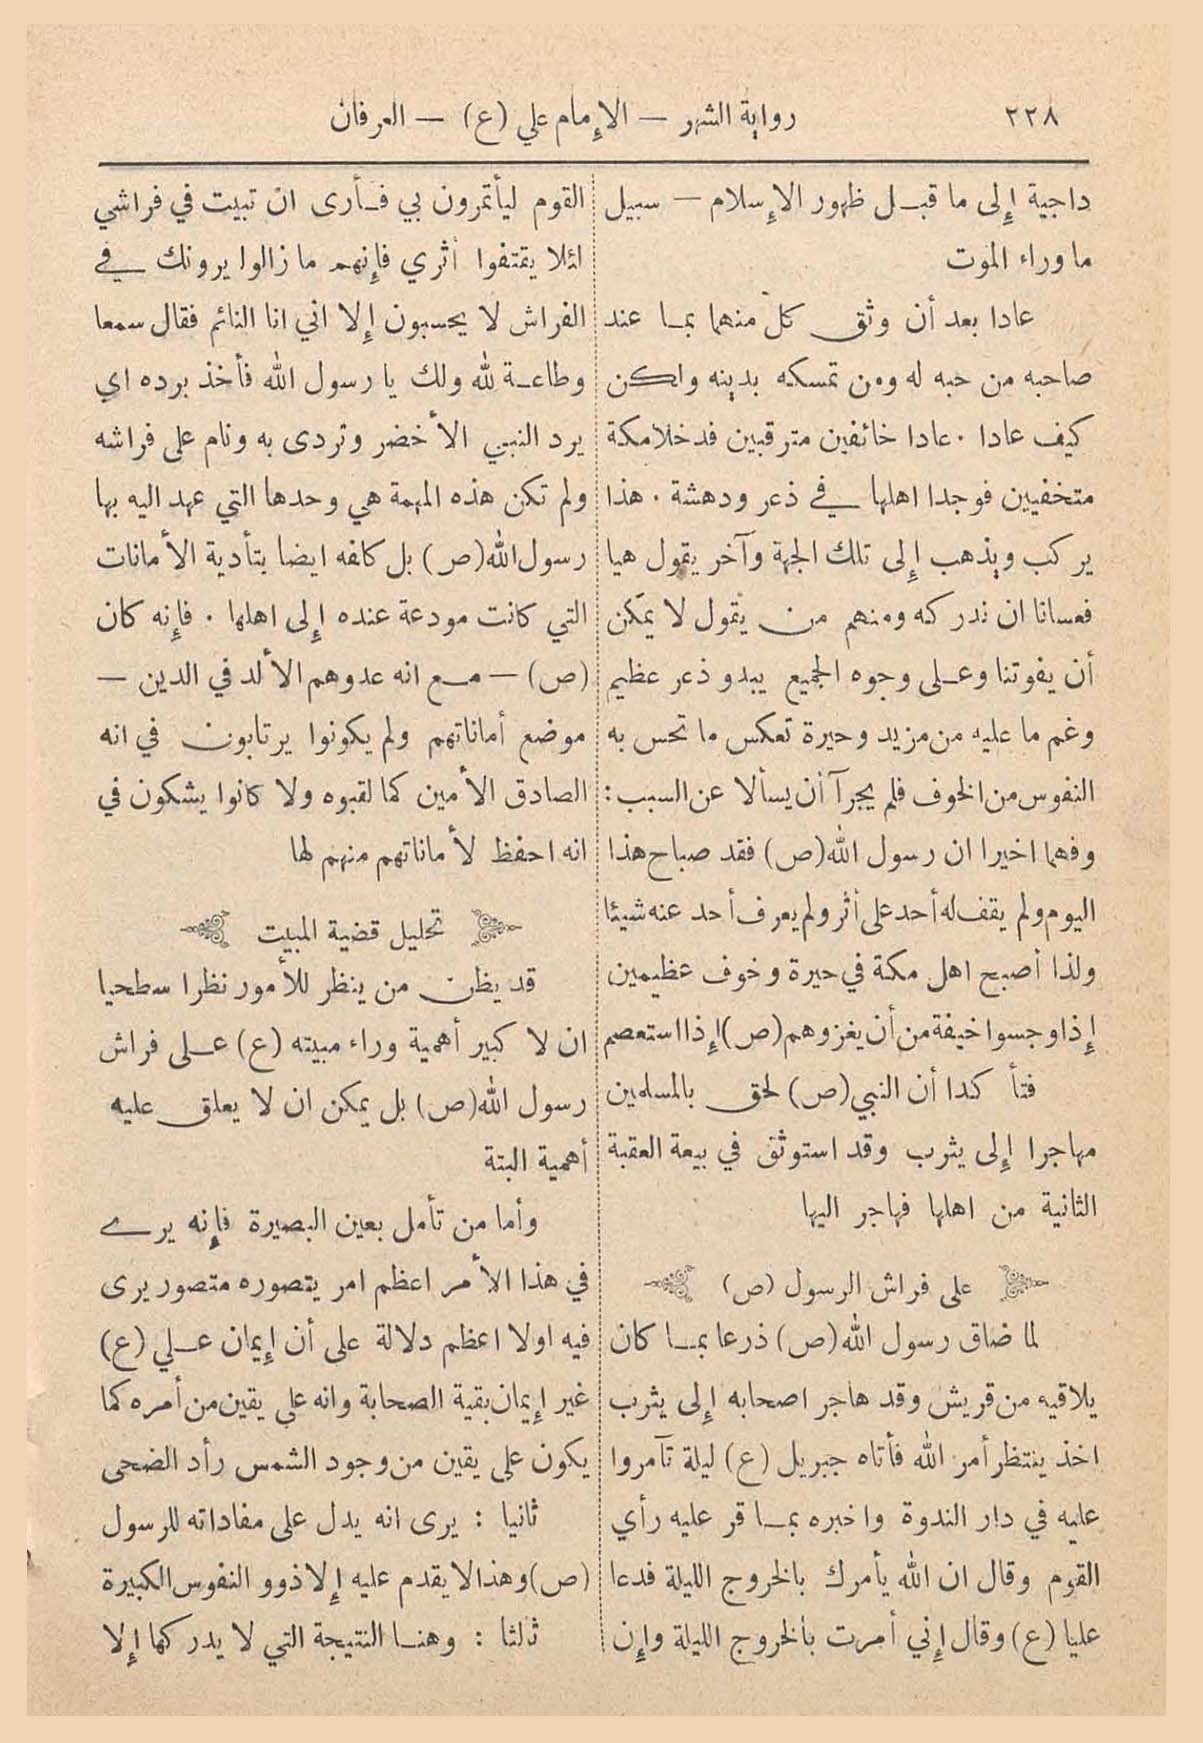 ٢٢٨
رواية الشهر — الإمام علي (ع) — العرفان
داجية إلى ما قبل ظهور الإسلام — سبيل
ما وراء الموت
عادا بعد أن وثق كل منهما بما عند
صاحبه من حبه له ومن تمسكه بدينه ولكن
كيف عادا . عادا خائفين مترقبين فدخلا مكة
متخفيين فوجدا اهلها في ذعر ودهشة . هذا
يركب ويذهب إلى تلك الجهة وآخر يقول هيا
فعسانا ان ندركه ومنهم من يقول لا يمكن
أن يفوتنا وعلى وجوه الجميع يبدو ذعر عظيم
وغم ما عليه من مزيد وحيرة تعكس ما تحس به
النفوس من الخوف فلم يجرآ أن يسألا عن السبب :
وفهما اخيرا ان رسول الله (ص) فقد صباح هذا
اليوم ولم يقف له أحد على أثر ولم يعرف أحد عنه شيئا
ولذا أصبح اهل مكة في حيرة وخوف عظيمين
إذا وجسوا خيفة من أن يغزوهم (ص) إذا استعصم
فتأكدا أن النبي (ص) لحق بالمسلمين
مهاجرا إلى يثرب وقد استوثق في بيعة العقبة
الثانية من اهلها فهاجر اليها
على فراش الرسول (ص)
لما ضاق رسول الله (ص) ذرعا بما كان
يلاقيه من قريش وقد هاجر اصحابه إلى يثرب
اخذ ينتظر أمر الله فأتاه جبريل (ع) ليلة تآمروا
عليه في دار الندوة واخبره بما قر عليه رأي
القوم وقال ان الله يأمرك بالخروج الليلة فدعا
عليا (ع) وقال إني أمرت بالخروج الليلة وإن
القوم ليأتمرون بي فأرى ان تبيت في فراشي
لئلا يقتفوا أثري فإنهم ما زالوا يرونك في
الفراش لا يحسبون إلا اني انا النائم فقال سمعا
وطاعة لله ولك يا رسول الله فأخذ برده اي
برد النبي الأخضر وتردى به ونام على فراشه
ولم تكن هذه المهمة هي وحدها التي عهد اليه بها
رسول الله (ص) بل كلفه ايضا بتأدية الأمانات
التي كانت مودعة عنده إلى اهلها . فإنه كان
(ص) — مع انه عدوهم الألد في الدين —
موضع أماناتهم ولم يكونوا يرتابون في انه
الصادق الأمين كما لقبوه ولا كانوا يشكون في
انه احفظ لأماناتهم منهم لها
تحليل قضية المبيت
قد يظن من ينظر للأمور نظرا سطحيا
ان لا كبير أهمية وراء مبيته (ع) على فراش
رسول الله (ص) بل يمكن ان لا يعلق عليه
أهمية البتة
وأما من تأمل بعين البصيرة فإنه يرى
في هذا الأمر اعظم امر يتصوره متصور يرى
فيه اولا اعظم دلالة على أن إيمان علي (ع)
غير إيمان بقية الصحابة وانه على يقين من أمره كما
يكون على يقين من وجود الشمس رأد الضحى
ثانيا : يرى انه يدل على مفاداته للرسول
(ص) وهذا لا يقدم عليه إلا ذوو النفوس الكبيرة
ثالثا : وهنا النتيجة التي لا يدركها إلا